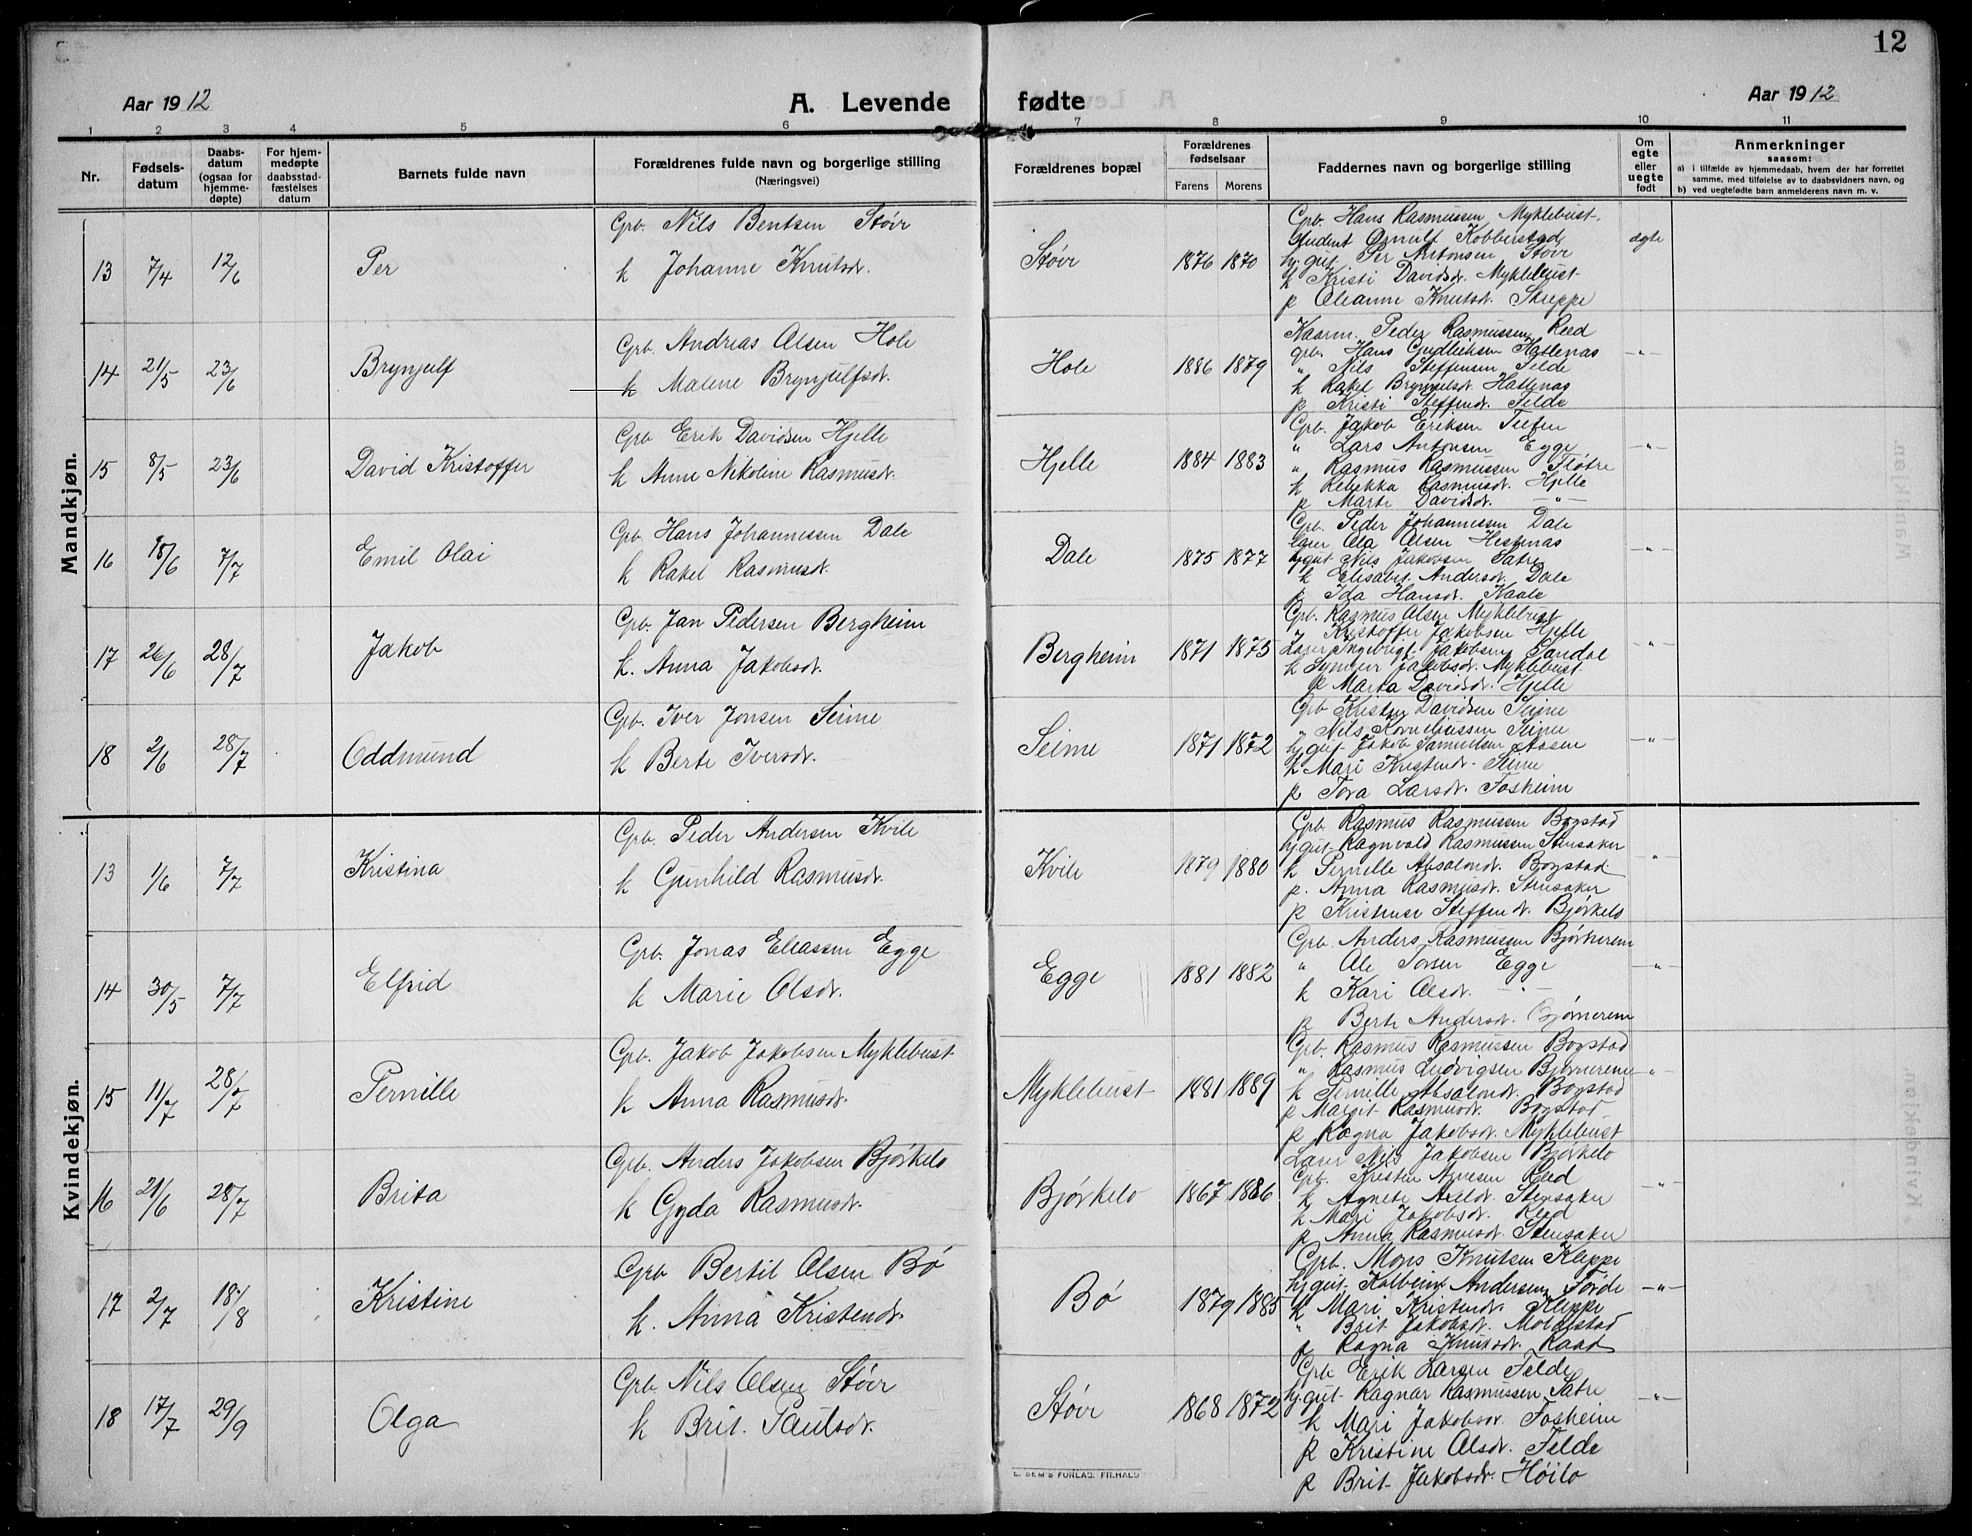 12
Aar 1912 A. Levende fødte Aar 1912
1 2 3 4 5 6 7 8 9 10 11
Nr.
Fødselsdatum
Daabsdatum (ogsaa for hjemmedøpte)
For hjemmedøpte daabsstadfæstelses datum
Barnets fulde navn
Forældrenes fulde navn og borgerlige stilling (Næringsvei)
Forældrenes bopæl
Forældrenes fødselsaar
Farens Morens
Faddernes navn og borgerlige stilling
Om egte eller uegte født
Anmerkninger
saasom:
a) i tilfælde av hjemmedaab, hvem der har forrettet samme, med tilføielse av to daabsvidners navn, og
b) ved uegtefødte barn anmelderens navn m. v.
Mandkjøn.
13 7/4 12/6 Per
Grb. Nils Bentsen Støvr
k Johanne Knutsdr.
Støvr 1876 1870
Grb. Hans Rasmussen Myklebust.
student Ørnulf Kobberstad
hj.gut Per Antonsen Støvr
k Kristi Davidsdr. Myklebust
p Oleanne Knutsdr. Skreppe
ægte
14 21/5 23/6 Brynjulf
Grb. Andreas Olsen Hole
k Malene Brynjulfsdr.
Hole 1886 1879
Kaarm. Peder Rasmussen Reed
grb. Hans Gudleiksen Hattenæs
" Nils Steffensen Felde
k Rakel Brynjulfsdr. Hattenæs
p Kristi Steffensdr. Felde
-"-
15 8/5 23/6 David Kristoffer
Grb Erik Davidsen Hjelle
k Anne Nikoline Rasmusdr.
Hjelle 1884 1883
Grb. Jakob Eriksen
" Lars Antonsen Egge
" Rasmus Rasmussen Fløtre
k Rebekka Rasmusdr. Hjelle
p Marte Davidsdr. -"-
-"-
16 18/6 7/7 Emil Olai
Grb. Hans Johannessen Dale
k Rakel Rasmusdr.
Dale 1875 1877
Grb. Peder Johannessen Dale
lærer Ola Olsen Hestenæs
hj.gut Nils Jakobsen Sætre
k Elisabet Andersdr. Dale
p Ida Hansdr. Kaale
-"-
17 26/6 28/7 Jakob
Grb. Jan Pedersen Bergheim
k. Anna Jakobsdr.
Bergheim 1871 1875
Grb. Rasmus Olsen Myklebust
" Kristoffer Jakobsen Hjelle
Lærer Ingebrigt Jakobsen Sandal
k Synneve Jakobsdr. Myklebust
p Marta Davidsdr. Hjelle
-"-
18 2/6 28/7 Oddmund
Grb. Iver Jonsen Seime
k Berte Iversdr.
Seime 1871 1872
Grb Kristen Davidsen Seime
" Nils Korneliussen Seime
hj.gut Jakob Samuelsen Aasen
k Mari Kristendr. Seime
p Tora Larsdr. Fosheim
-"-
Kvindekjøn.
13 1/6 7/7 Kristina
Grb. Peder Andersen Kvile
k Gunhild Rasmusdr.
Kvile 1879 1880
Grb Rasmus Rasmussen Bogstad
hj.gut Ragnvald Rasmussen Stensaker
k Pernille Absalondr. Bogstad
p. Anna Rasmusdr. Stensaker
p Kristense Steffendr. Bjørkelo
"
14 30/5 7/7 Elfrid
Grb. Jonas Eliassen Egge
k Marie Olsdr.
Egge 1881 1882
Grb. Anders Rasmussen Bjørnerem
" Ole Egge
k Kari Olsdr. -"-
p Berte Andersdr. Bjørnerem
-"-
15 11/7 28/7 Pernille
Grb. Jakob Jakobsen Myklebust
k Anna Rasmusdr.
Myklebust 1881 1889
Grb. Rasmus Rasmussen Bogstad
" Rasmus Ludvigsen Bjørnerem
k Pernille Absalondr. Bogstad
p Margit Rasmusdr. Bogstad
p Ragna Jakobsdr. Myklebust
"
16 21/6 28/7 Brita
Grb. Anders Jakobsen Bjørkelo
k Gyda Rasmusdr.
Bjørkelo 1867 1886
Lærer Nils Jakobsen Bjørkelo
Grb. Kristen Reed
k Agnete Stensaker
k Mari Jakobsdr. Reed
p Anna Rasmusdr. Stensaker
-"-
17 2/7 18/8 Kristine
Grb Bertil Olsen Bø
k. Anna Kristendr.
Bø 1879 1885
Grb. Mons Knutsen Kleppe
hj.gut Kolbein Andersen Førde
k Mari Kristendr. Kleppe
" Brit Jakobsdr. Moldestad
p Ragna Knutsdr. Raad
-"-
18 17/7 29/9 Olga
Grb Nils Olsen Støvr
k Brit Paulsdr.
Støvr 1868 1872
Grb Erik Larsen Felde
hj.gut Ragnar Rasmussen Sætre
k Mari Jakobsdr Fosheim
p Kristine Olsdr. Felde
p Brit Jakobsdr. Høilo
-"-
E. SEM'S FORLAG, FR.HALD